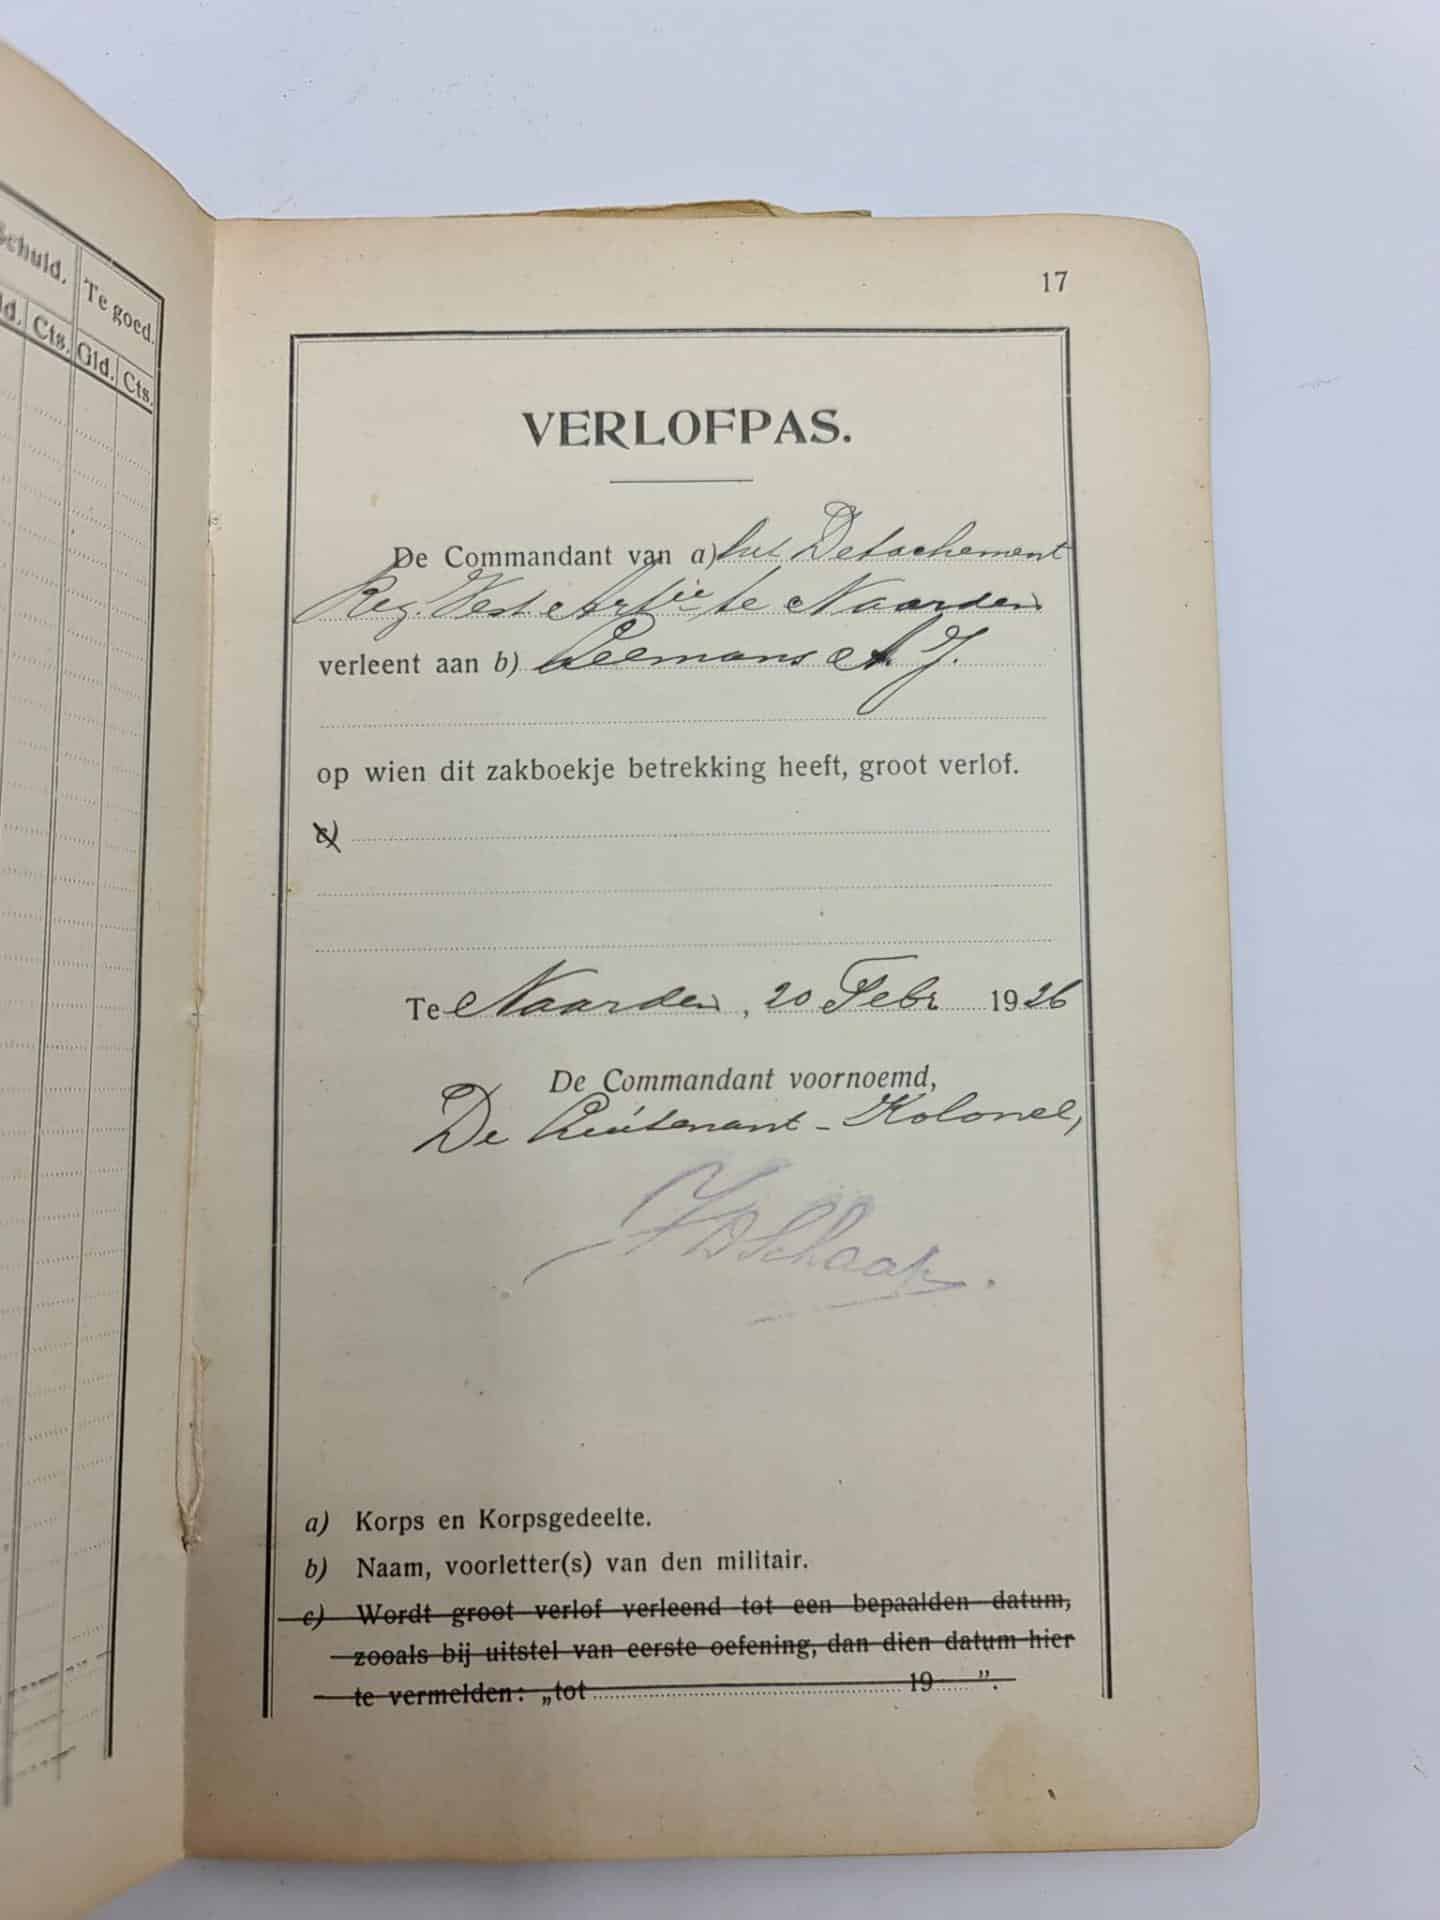 Schuld.
Te goed.
Cts.
Gld.
Cts.
17
VERLOFPAS.
De Commandant van a) het Detachement
Reg. Vest. Artie te Naarden
verleent aan b) Leemans A. J.
op wien dit zakboekje betrekking heeft, groot verlof.
c)
Te Naarden, 20 Febr 1926
De Commandant voornoemd,
De Luitenant-Kolonel,
a) Korps en Korpsgedeelte.
b) Naam, voorletter(s) van den militair.
c) Wordt groot verlof verleend tot een bepaalden datum,
zooals bij uitstel van eerste oefening, dan dien datum hier
te vermelden: „tot 19 ”.